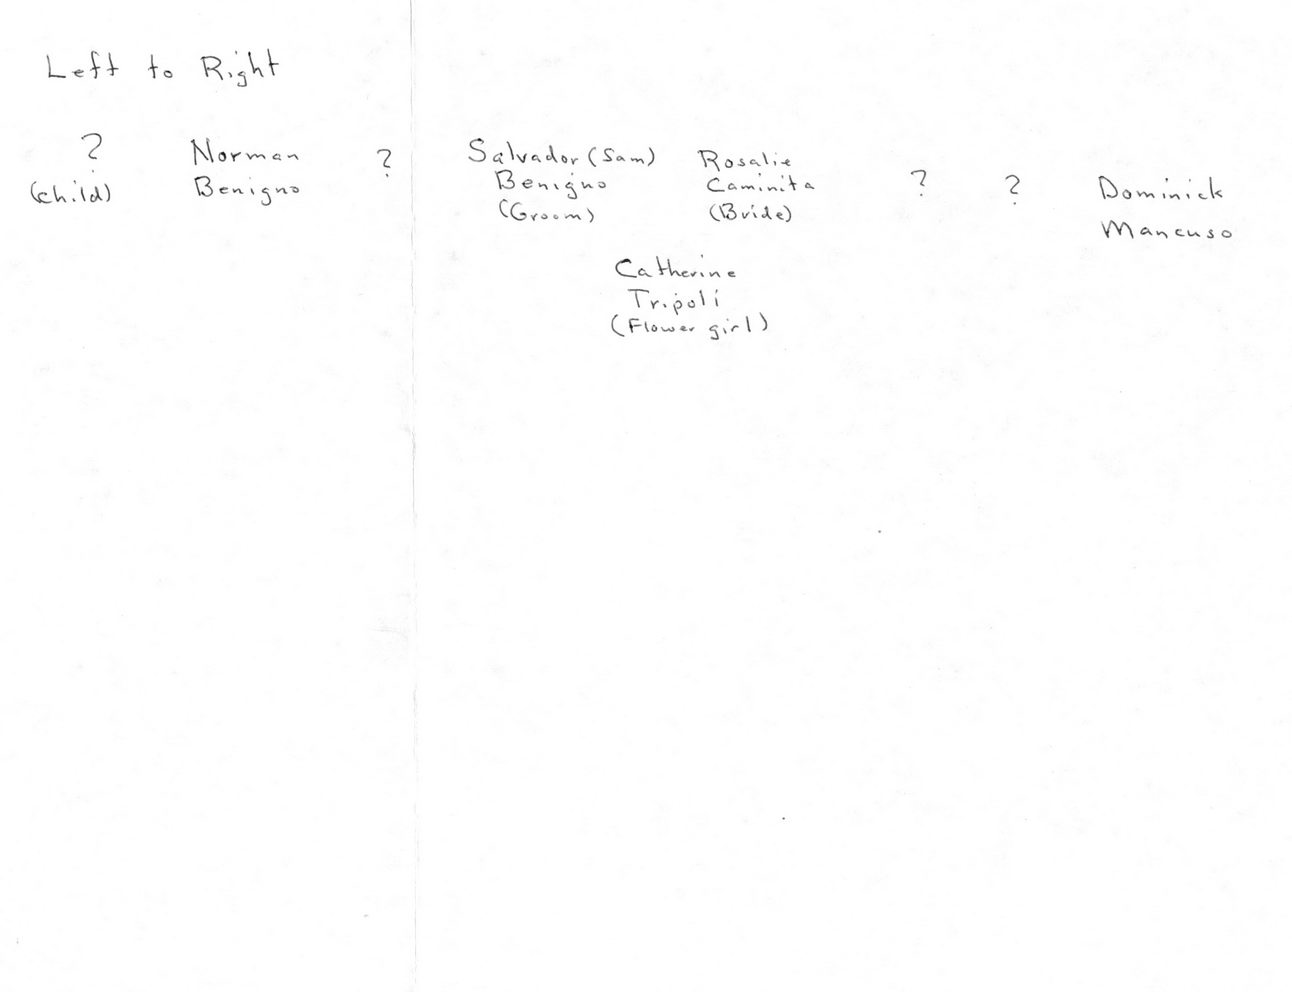 Left to Right
?
(child)
Norman
Benigno
?
Salvador (Sam)
Benigno
(Groom)
Rosalie
Caminita
(Bride)
?
?
Dominick
Mancuso
Catherine
Tripoli
(Flower girl)